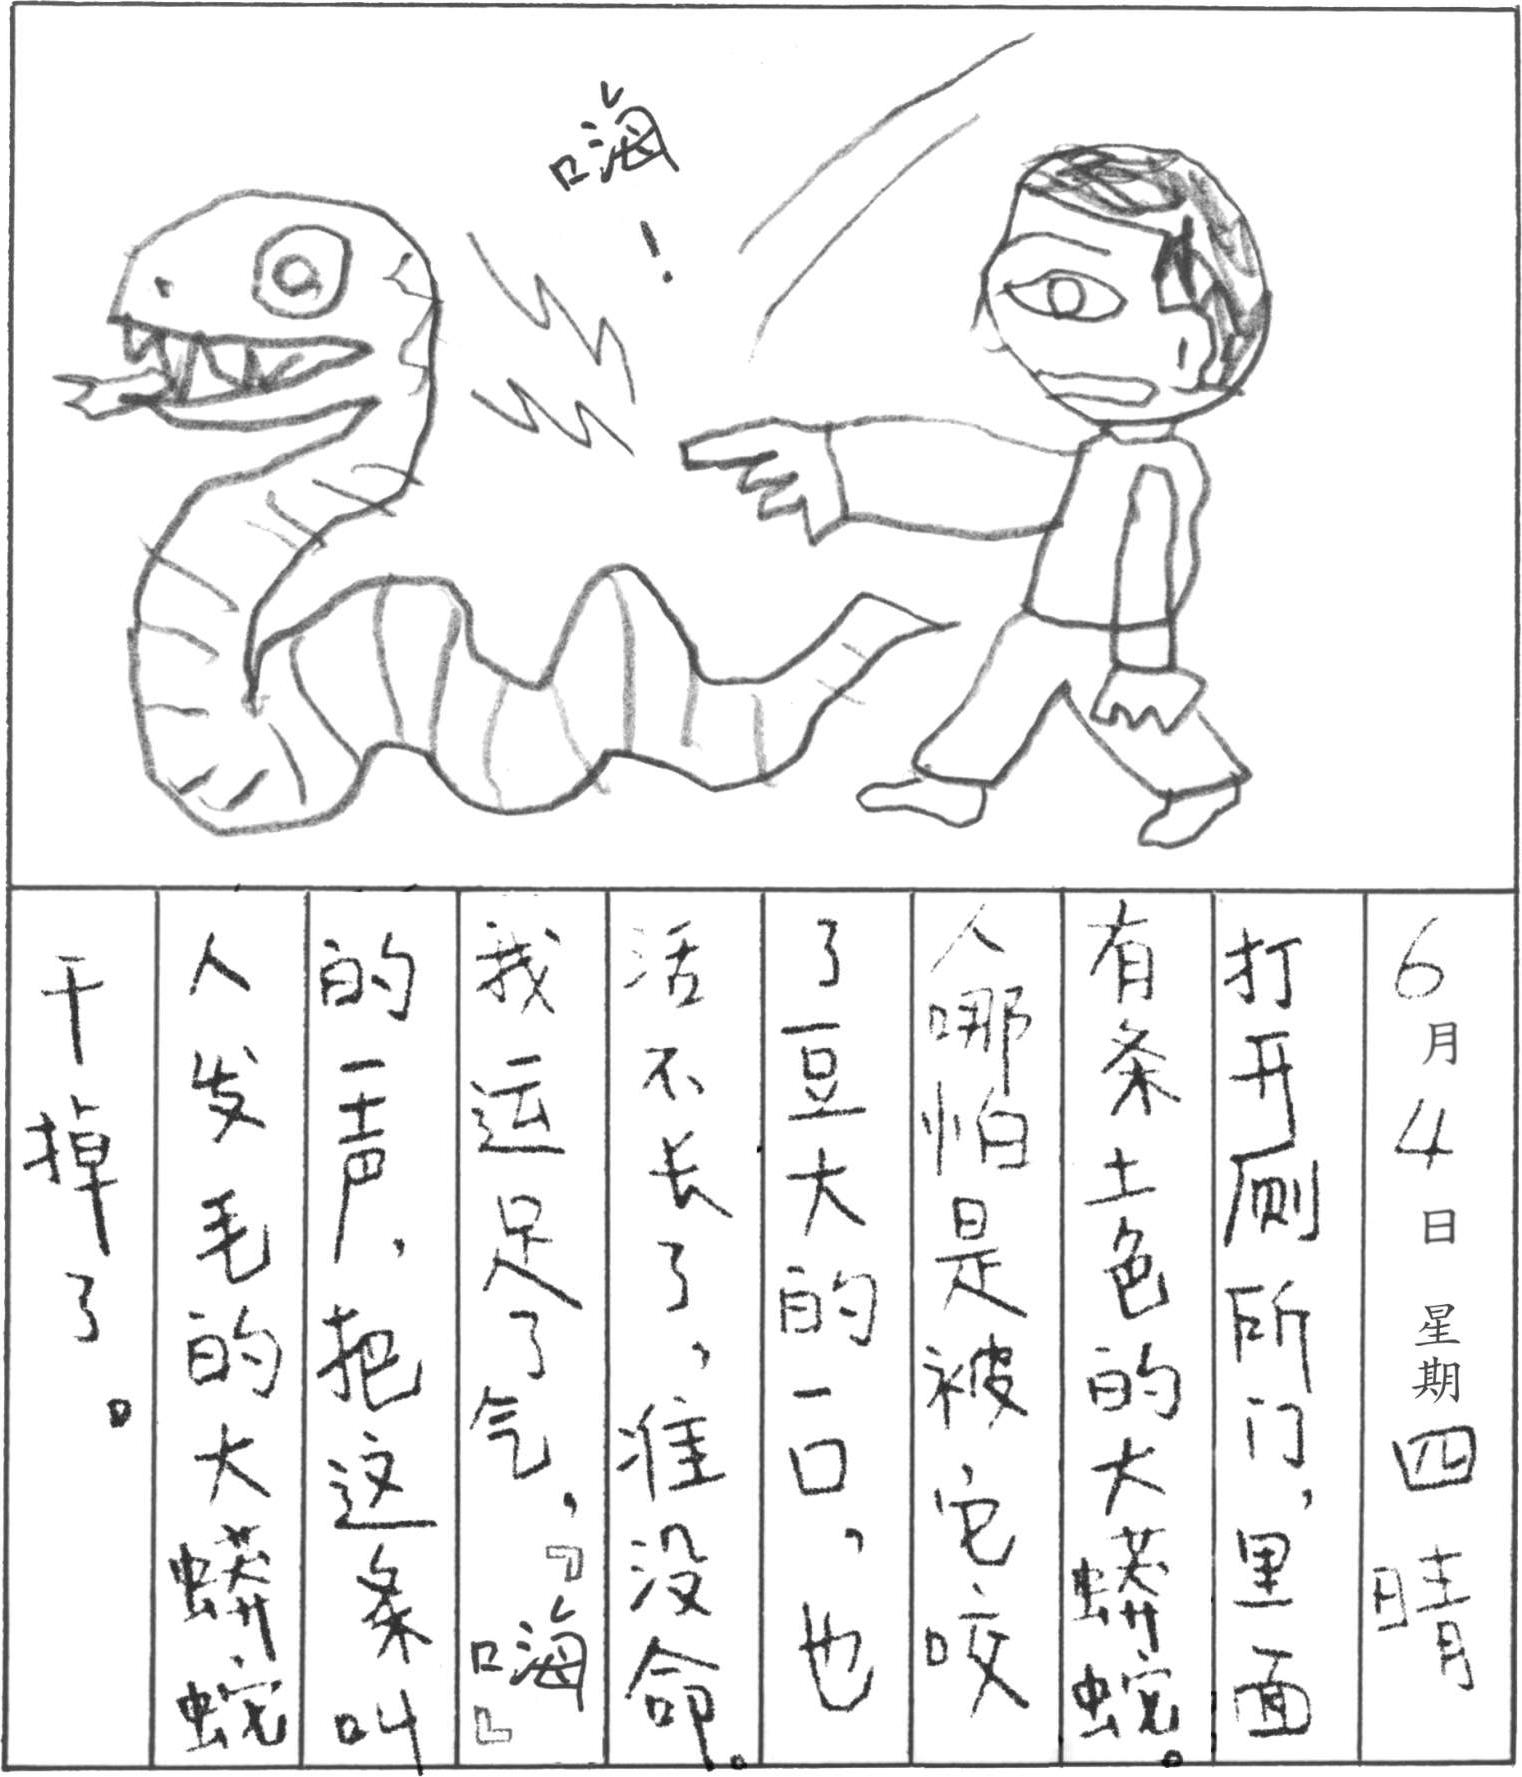 嗨！
6月4日 星期四 晴
打开厕所门，里面
有条土色的大蟒蛇。
人哪怕是被它咬
了豆大的一口，也
活不长了，准没命。
我运足了气，『嗨』
的一声，把这条叫
人发毛的大蟒蛇
干掉了。